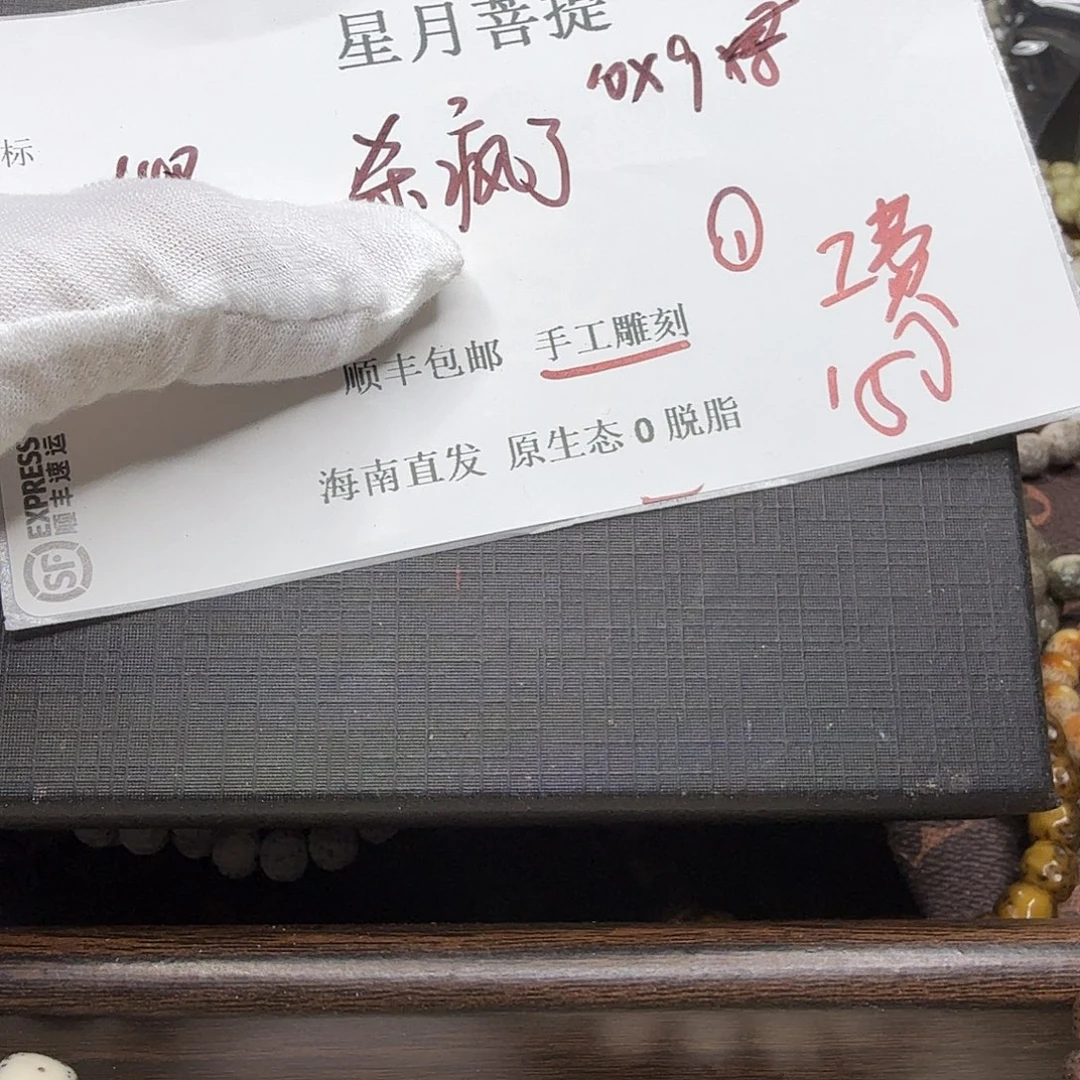 星月菩提
10X9
标
杀疯了
①
工费
150
顺丰包邮 手工雕刻
海南直发 原生态0脱脂
SF EXPRESS
顺丰速运